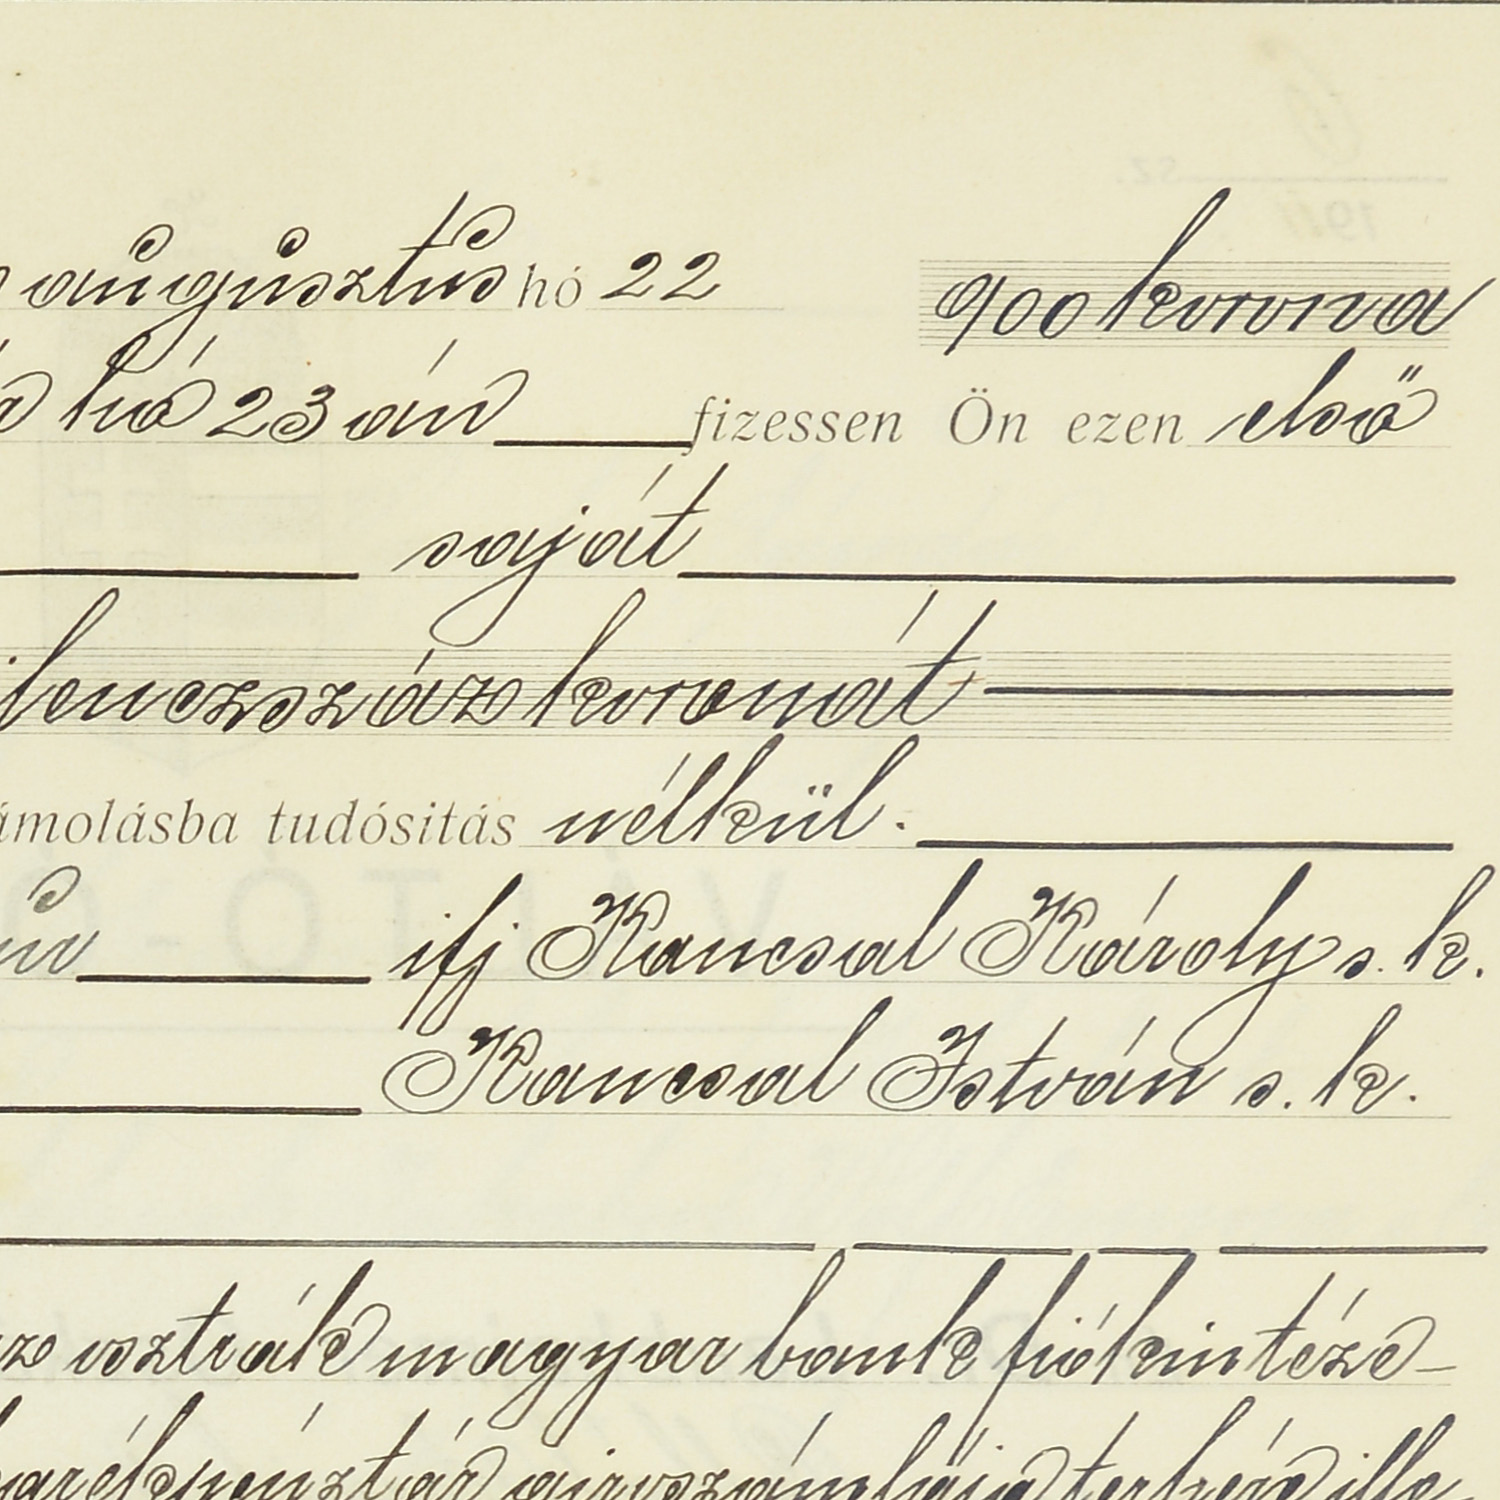 augusztus hó 22 900 korona
hó 23 án fizessen Ön ezen első
saját
ilenczszáz koronát
ámolásba tudósitás nélkül.
ifj Kancsal Károly s. k.
Kancsal István s. k.
osztrák magyar bank fiókintéze-